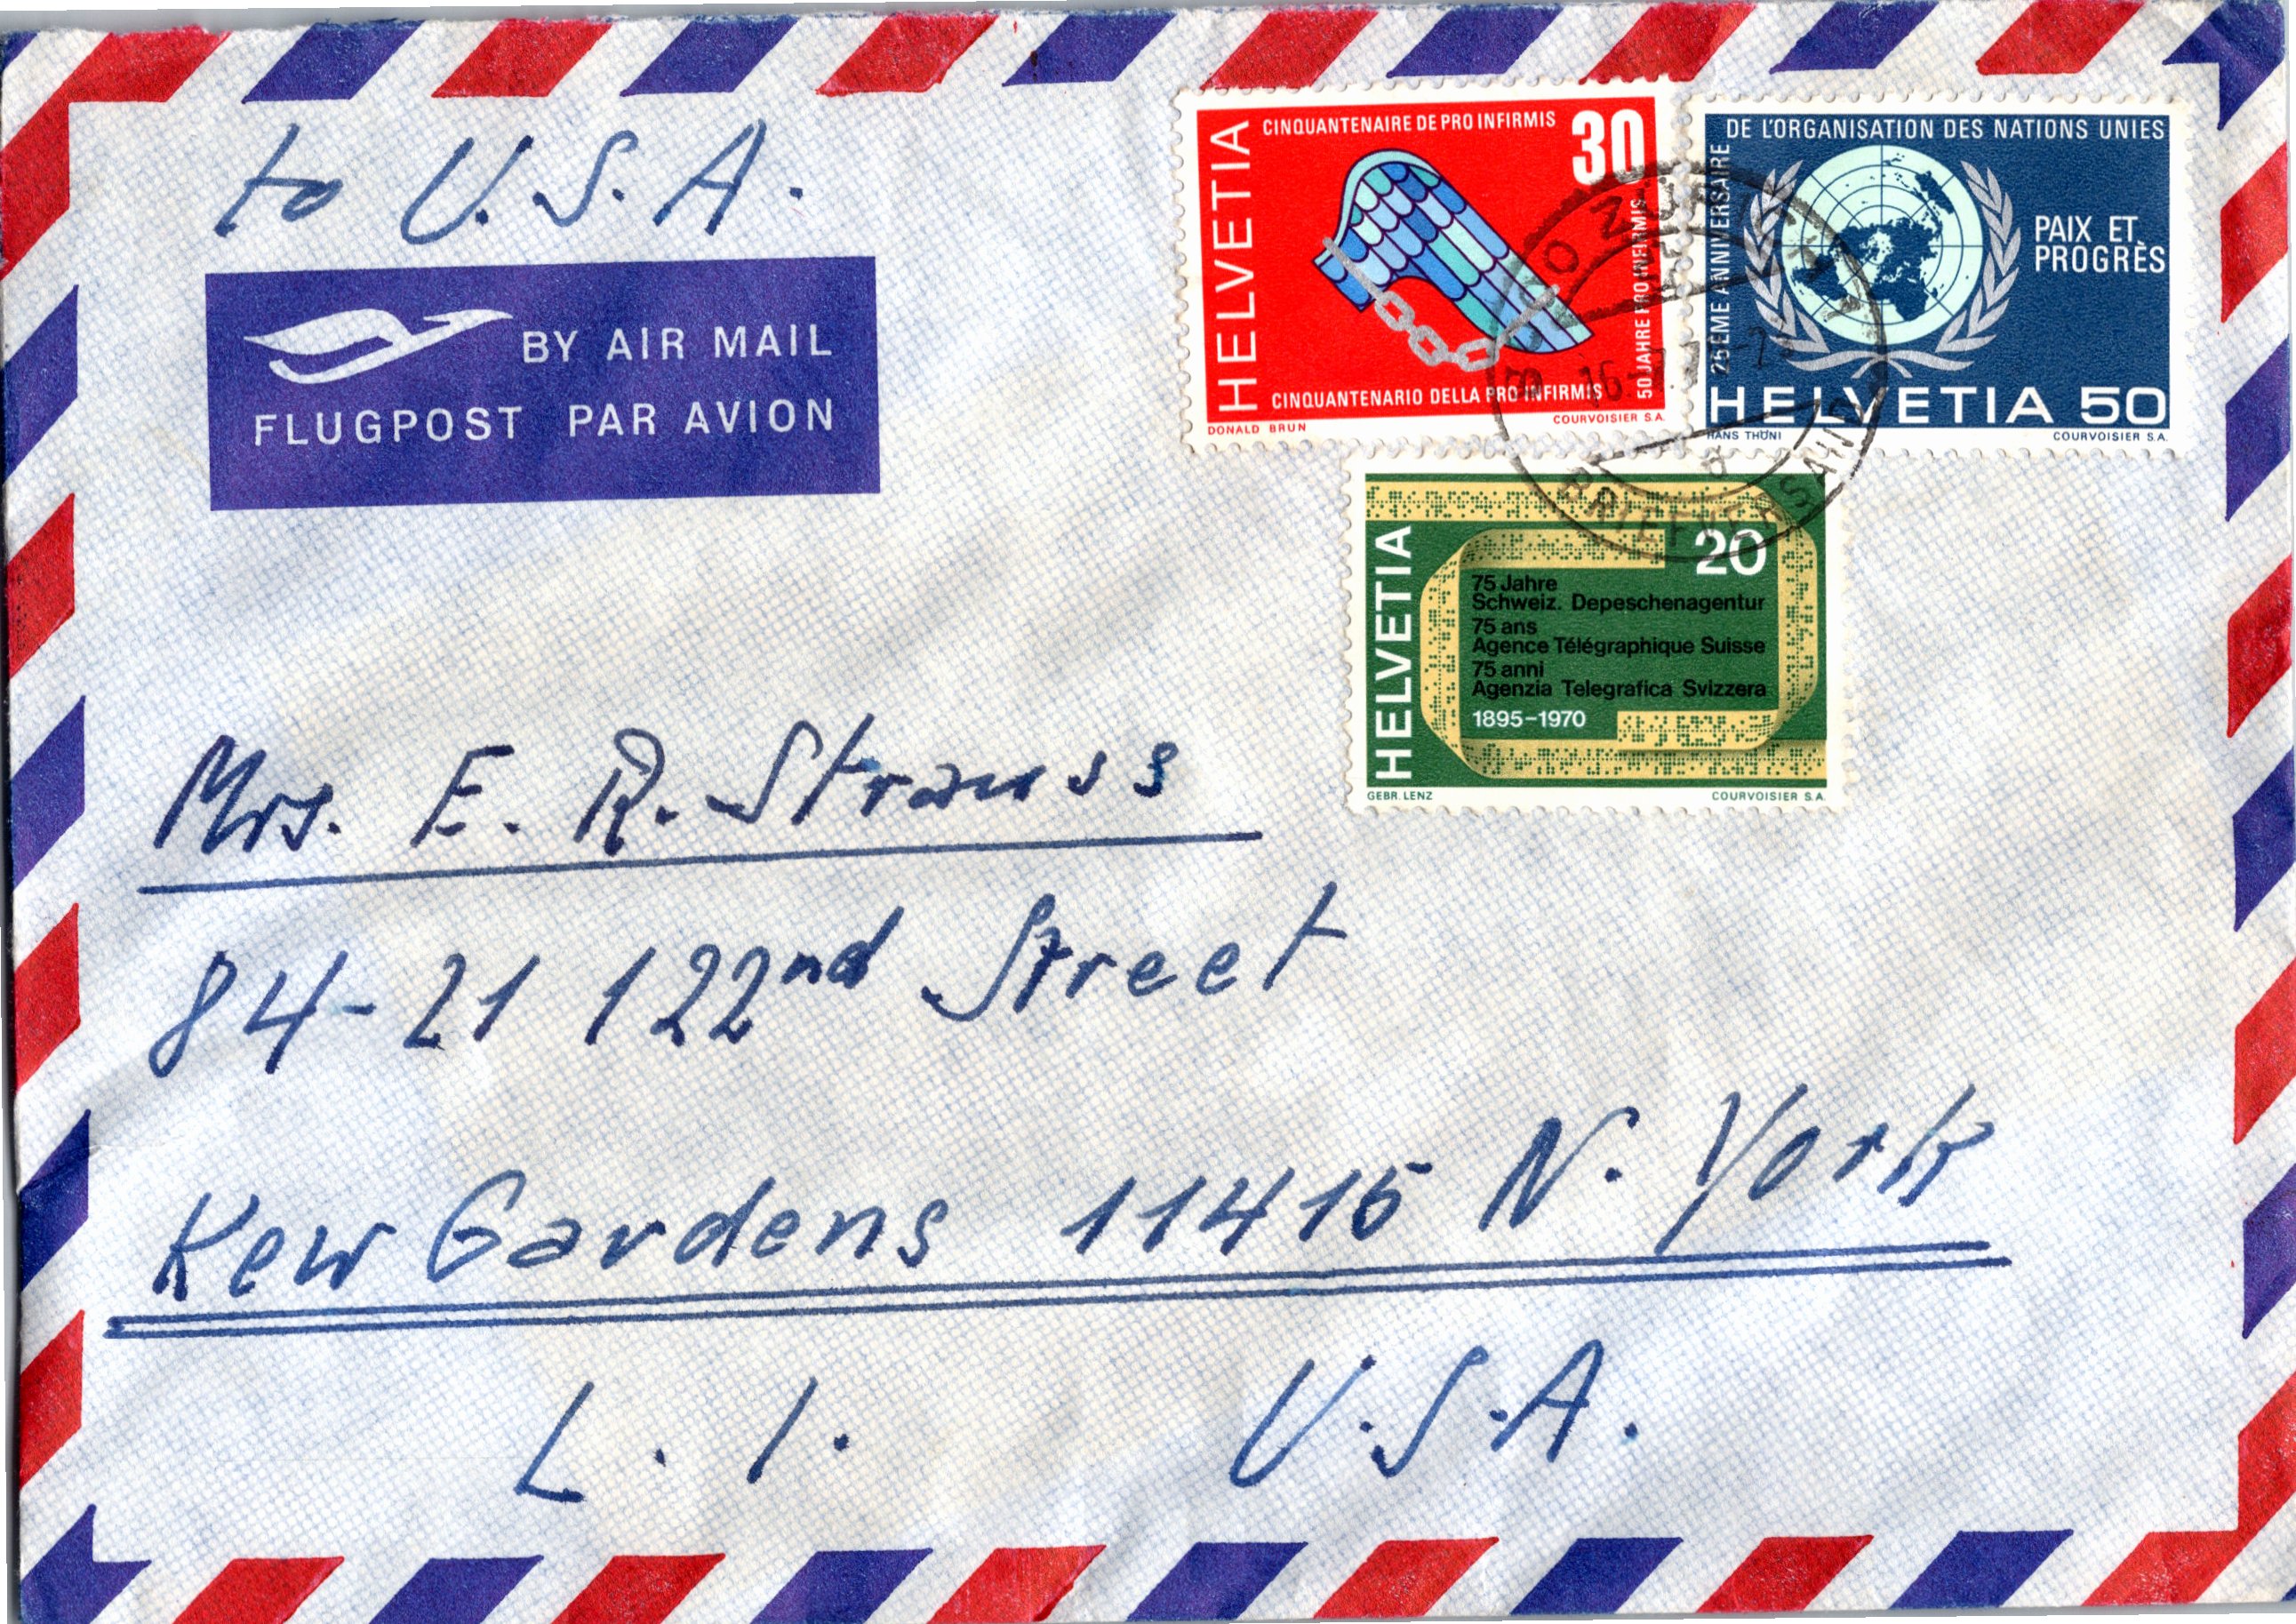 to U.S.A.
BY AIR MAIL
FLUGPOST PAR AVION
HELVETIA
CINQUANTENAIRE DE PRO INFIRMIS
30
50 JAHRE PRO INFIRMIS
CINQUANTENARIO DELLA PRO INFIRMIS
DONALD BRUN
COURVOISIER S.A.
25ÈME ANNIVERSAIRE
DE L'ORGANISATION DES NATIONS UNIES
PAIX ET
PROGRÈS
HELVETIA 50
HANS THÖNI
COURVOISIER S.A.
BRIEFVERSAND
HELVETIA
20
75 Jahre
Schweiz. Depeschenagentur
75 ans
Agence Télégraphique Suisse
75 anni
Agenzia Telegrafica Svizzera
1895-1970
GEBR. LENZ
COURVOISIER S.A.
Mrs. E. R. Strauss
84-21 122nd Street
Kew Gardens 11415 N. York
L. I. U.S.A.